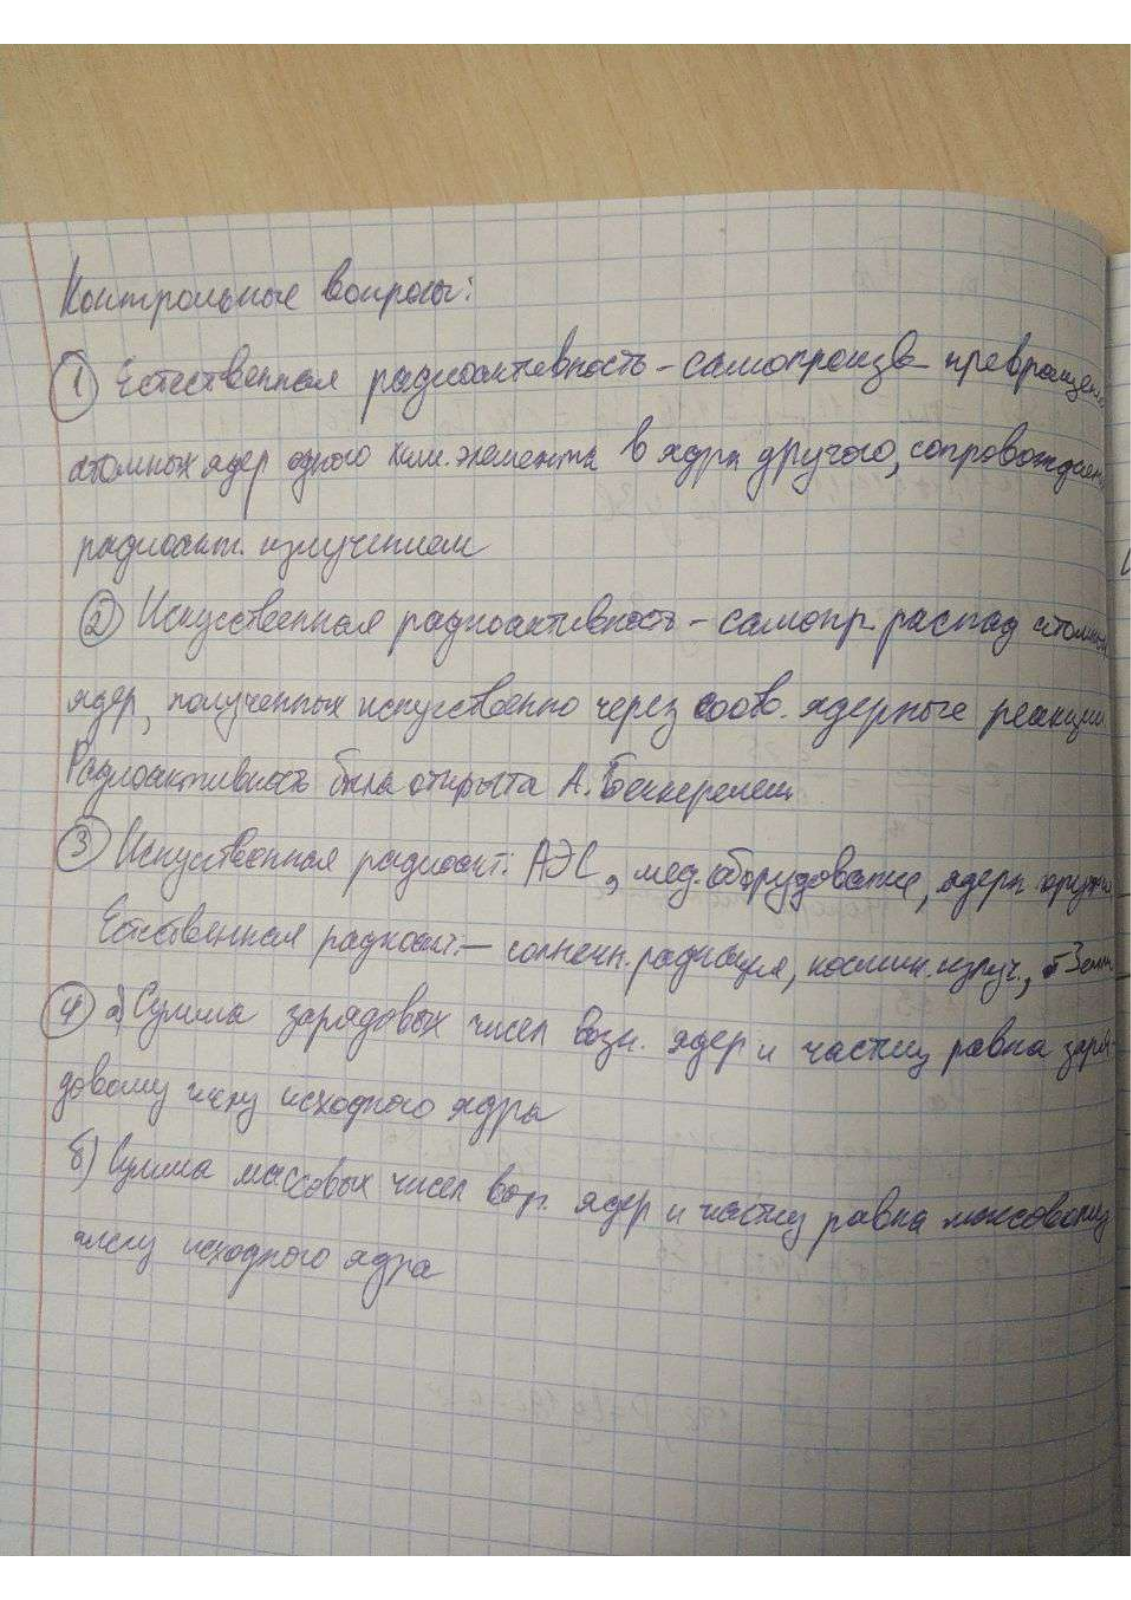 Контрольные вопросы:
① Естественная радиоактивность - самопроизв. превращен
атомных ядер одного хим. элемента в ядра другого, сопровождаем
радиоакт. излучением
② Искусственная радиоактивность - самопр. распад атомных
ядер, полученных искусственно через соотв. ядерные реакции
Радиоактивность была открыта А. Беккерелем
③ Искуственная радиоакт: АЭС, мед. оборудование, ядерн. оружие
Естественная радиоакт. - солнечн. радиация, космич. излуч., Земли
④ а) Сумма зарядовых чисел возн. ядер и частиц равна заря-
довому числу исходного ядра
б) Сумма массовых чисел возн. ядер и частиц равна массовому
числу исходного ядра